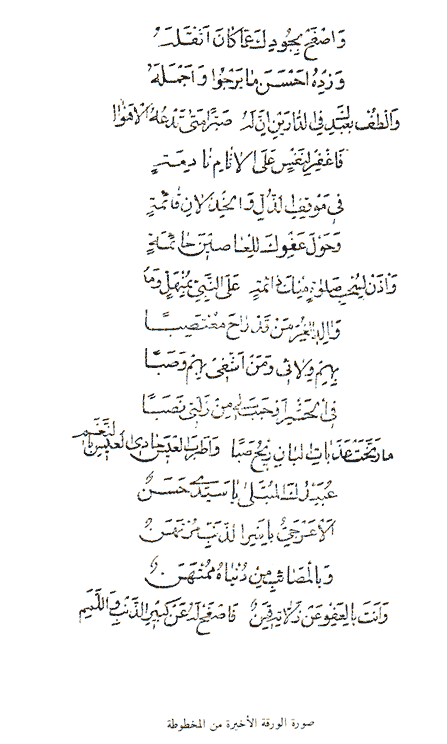 وَاصْفَحْ بِجُودِكَ عَمَّا كَانَ أَثْقَلَهُ
وَزِدْهُ أَحْسَنَ مَا يَرْجُوا وَأَجْمَلَهُ
وَالْطُفْ بِعَبْدِكَ فِي الدَّارَيْنِ إِنَّ لَهُ صَبْرًا مَتَى تَدْعُهُ الْأَهْوَا
فَاغْفِرْ لِنَفْسٍ عَلَى الْآثَامِ نَادِمَةٍ
فِي مَوْقِفِ الذُّلِّ وَالْخِذْلَانِ قَائِمَةٍ
وَحَوْلَ عَفْوِكَ لِلْعَاصِينَ حَائِمَةٍ
وَأْذَنْ لِسُحْبِ صَلَوةٍ مِنْكَ دَائِمَةٍ عَلَى النَّبِيِّ بِمُنْهَلٍّ وَمَا
وَآلِهِ الْغُرِّ مَنْ قَدْ رَاحَ مُعْتَصِبًا
بِهِمْ وَلَائِي وَمَنْ أَشْفَى بِهِمْ وَصَبًا
فِي الْحَشْرِ مِنْ زَلَّتِي نَصَبًا
مَا رَنَّحَتْ عَذَبَاتِ الْبَانِ رِيحُ صَبًا وَأَطْرَبَ الْعِيسَ حَادِي الْعِيسِ بِالنَّغَمِ
عُبَيْدُكَ الْمُبْتَلَى يَا سَيِّدِي حَسَنٌ
الْأَعْرَجِيُّ بِأَسْرِ الذَّنْبِ مُرْتَهَنٌ
وَبِالْمَصَائِبِ مِنْ دُنْيَاهُ مُمْتَهَنٌ
وَأَنْتَ بِالْعَفْوِ عَنْ زَلَّاتِهِ قَمِنٌ فَاصْفَحْ لَهُ عَنْ كَبِيرِ الذَّنْبِ وَاللَّمَمِ
صورة الورقة الأخيرة من المخطوطة